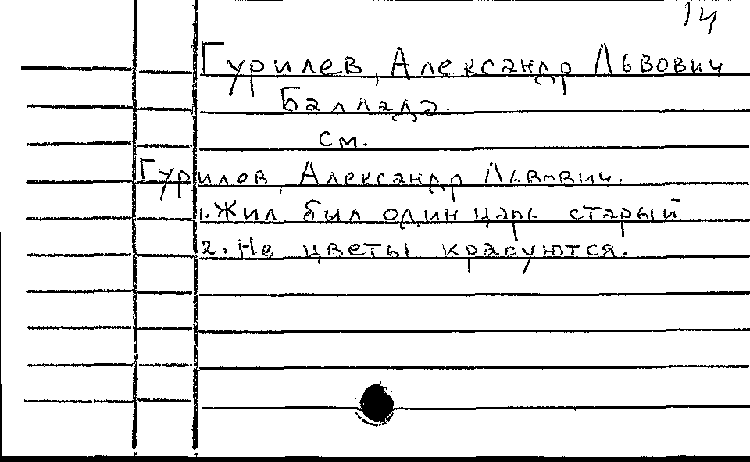 14
Гурилев, Александр Львович
Баллада
см.
Гурилев, Александр Львович.
1. Жил был один царь старый
2. Не цветы красуются.